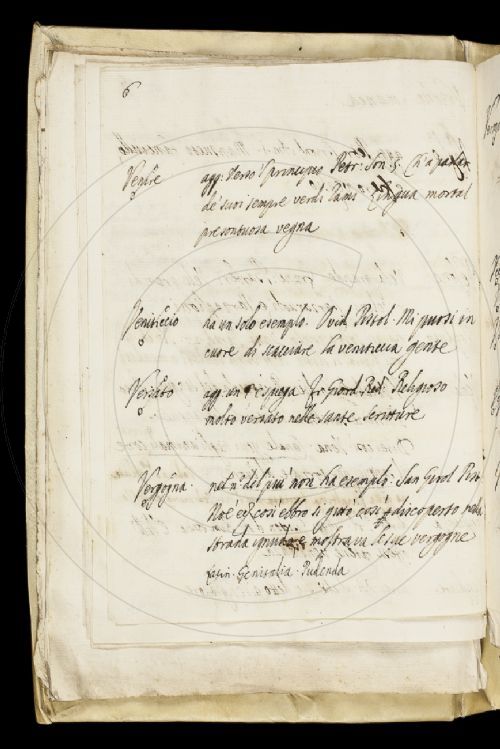 6
agg. verso 'l principio Petr. Son. 5. Ch'a parlar
de' suoi sempre verdi rami Lingua mortal
presontuosa vegna
Veniticcio ha un solo esemplo. Ovid. Pistol. Mi puosi in
cuore di scacciare la veniticcia gente
Versato agg. un Fr. Giord. Pred. Religioso
molto versato nelle sante scritture
Vergogna nel n.° del più non ha esemplo. San Girol. Pist.
Noe così ebbro si gittò così discoperto nella
strada ignudo e mostrava le sue vergogne
latin. Genitalia. Pudenda